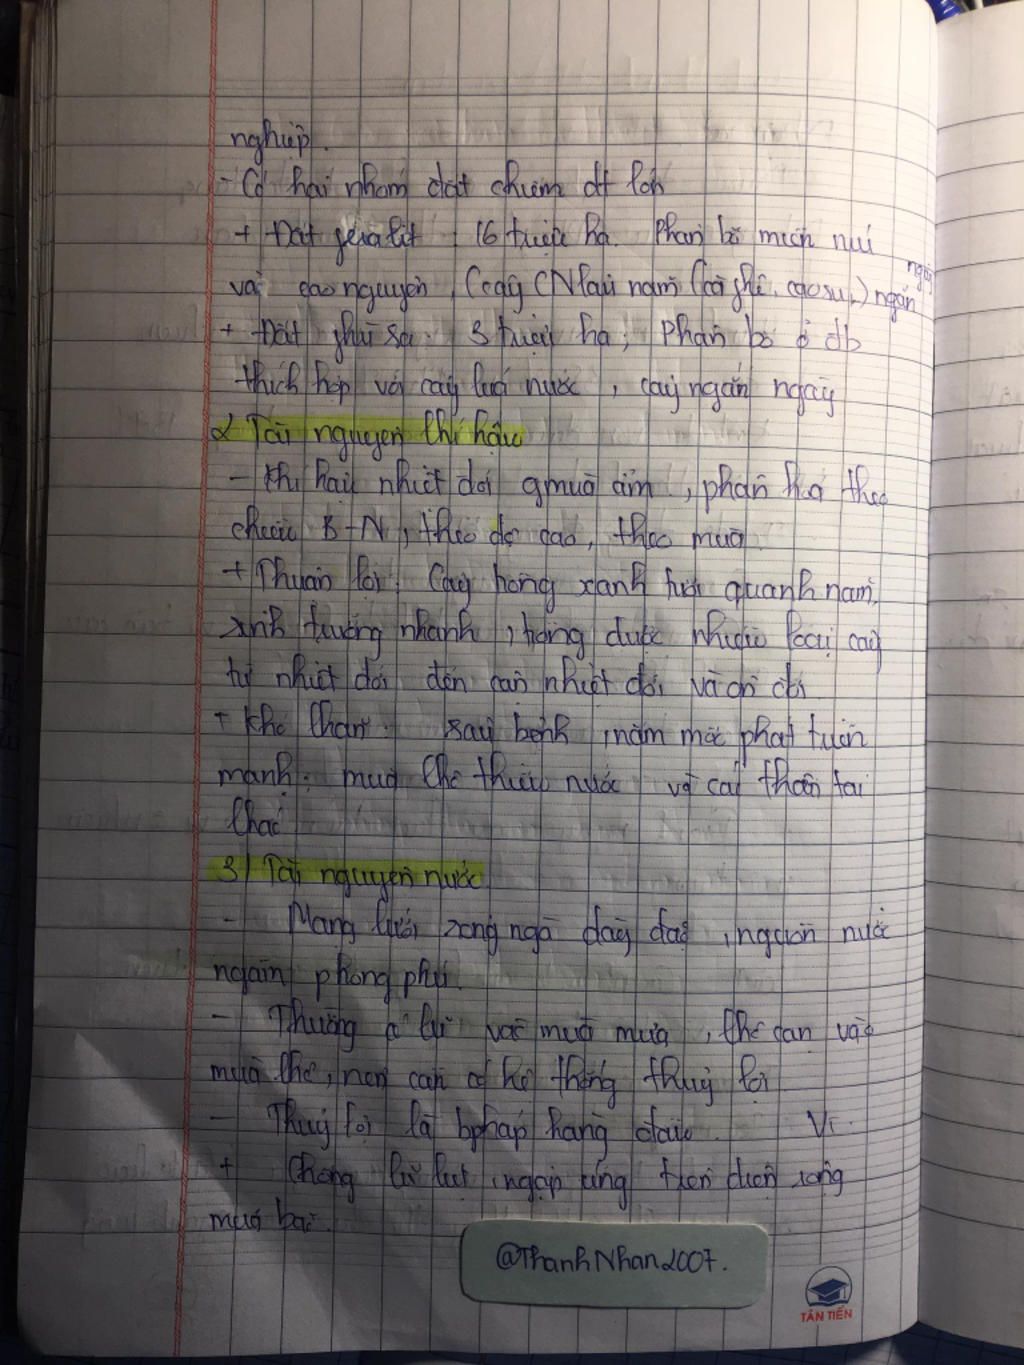 nghiệp.
- Có hai nhóm đất chiếm dt lớn
+ Đất feralit : 16 triệu ha. Phân bố miền núi
và cao nguyên, (cây CN lâu năm (cà phê, cao su,..) ngắn
ngắn
+ Đất phù sa: 3 triệu ha; Phân bố ở đb
thích hợp với cây lúa nước, cây ngắn ngày
2 Tài nguyên khí hậu
- Khí hậu nhiệt đới gmùa ẩm, phân hoá theo
chiều B-N, theo độ cao, theo mùa.
+ Thuận lợi: Cây trồng xanh tươi quanh năm,
sinh trưởng nhanh, trồng được nhiều loại cây
từ nhiệt đới đến cận nhiệt đới và ôn đới
+ Khó khăn: sâu bệnh, nấm mốc phát triển
mạnh; mùa khô thiếu nước và các thiên tai
khác
3) Tài nguyên nước
- Mạng lưới sông ngòi dày đặc, nguồn nước
ngầm phong phú.
- Thường có lũ vào mùa mưa, khô cạn vào
mùa khô, nên cần có hệ thống thuỷ lợi
- Thuỷ lợi là bpháp hàng đầu. Vì.
+ Chống lũ lụt, ngập úng trên diện rộng
mùa bão.
@ThanhNhan2007.
TÂN TIẾN